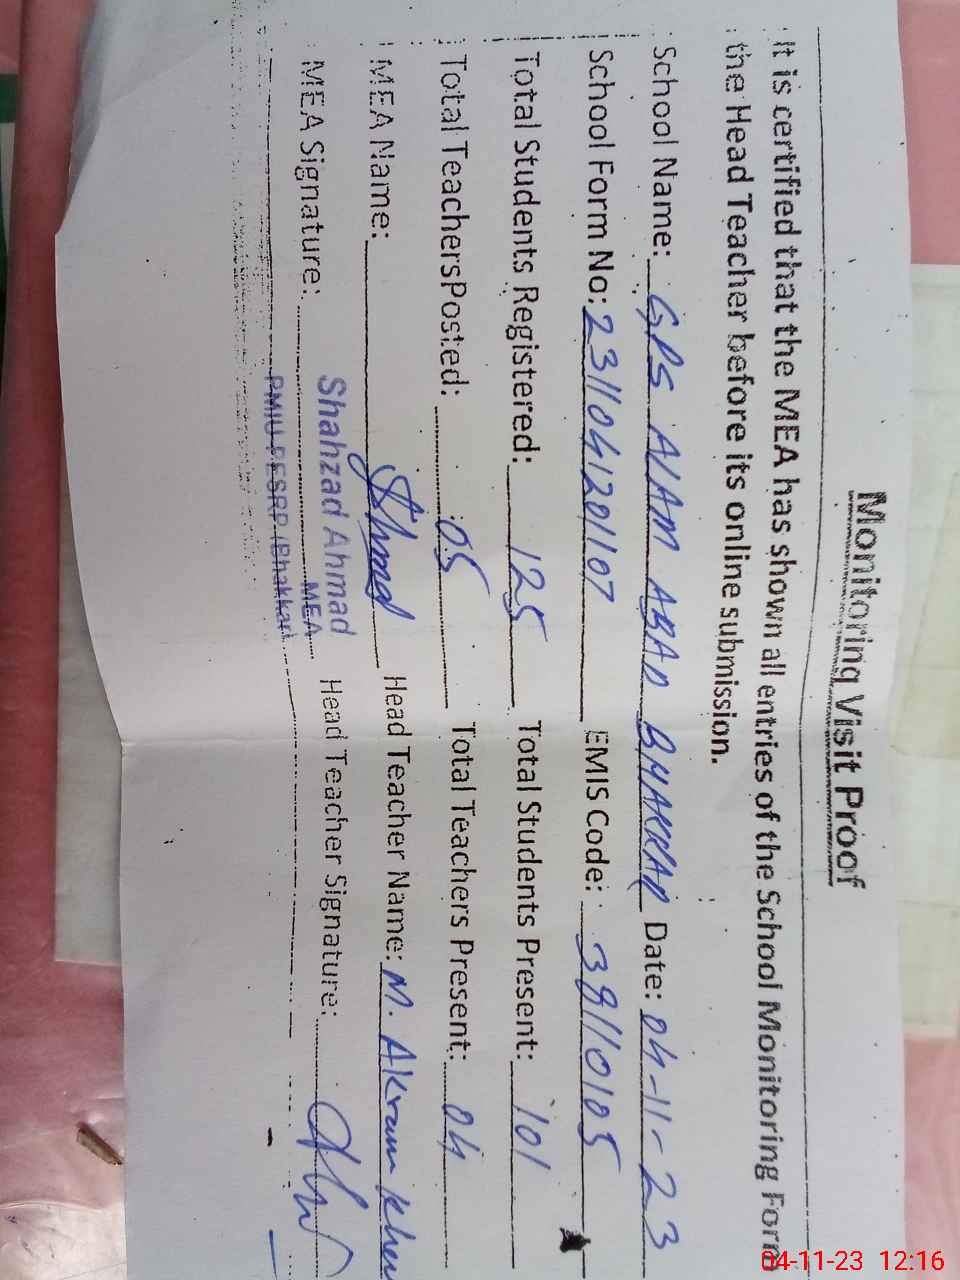 Monitoring Visit Proof
It is certified that the MEA has shown all entries of the School Monitoring Form
the Head Teacher before its online submission.
School Name: GPS ALAM ABAD BHAKKAR Date: 04-11-23
School Form No: 2311041201107 EMIS Code: 38110105
Total Students Registered: 125 Total Students Present: 101
Total TeachersPosted: 05 Total Teachers Present: 04
MEA Name: Ahmad Head Teacher Name: M. Akram
MEA Signature: Head Teacher Signature:
Shahzad Ahmad
MEA
PMIU-PESRP (Bhakkar)
04-11-23 12:16